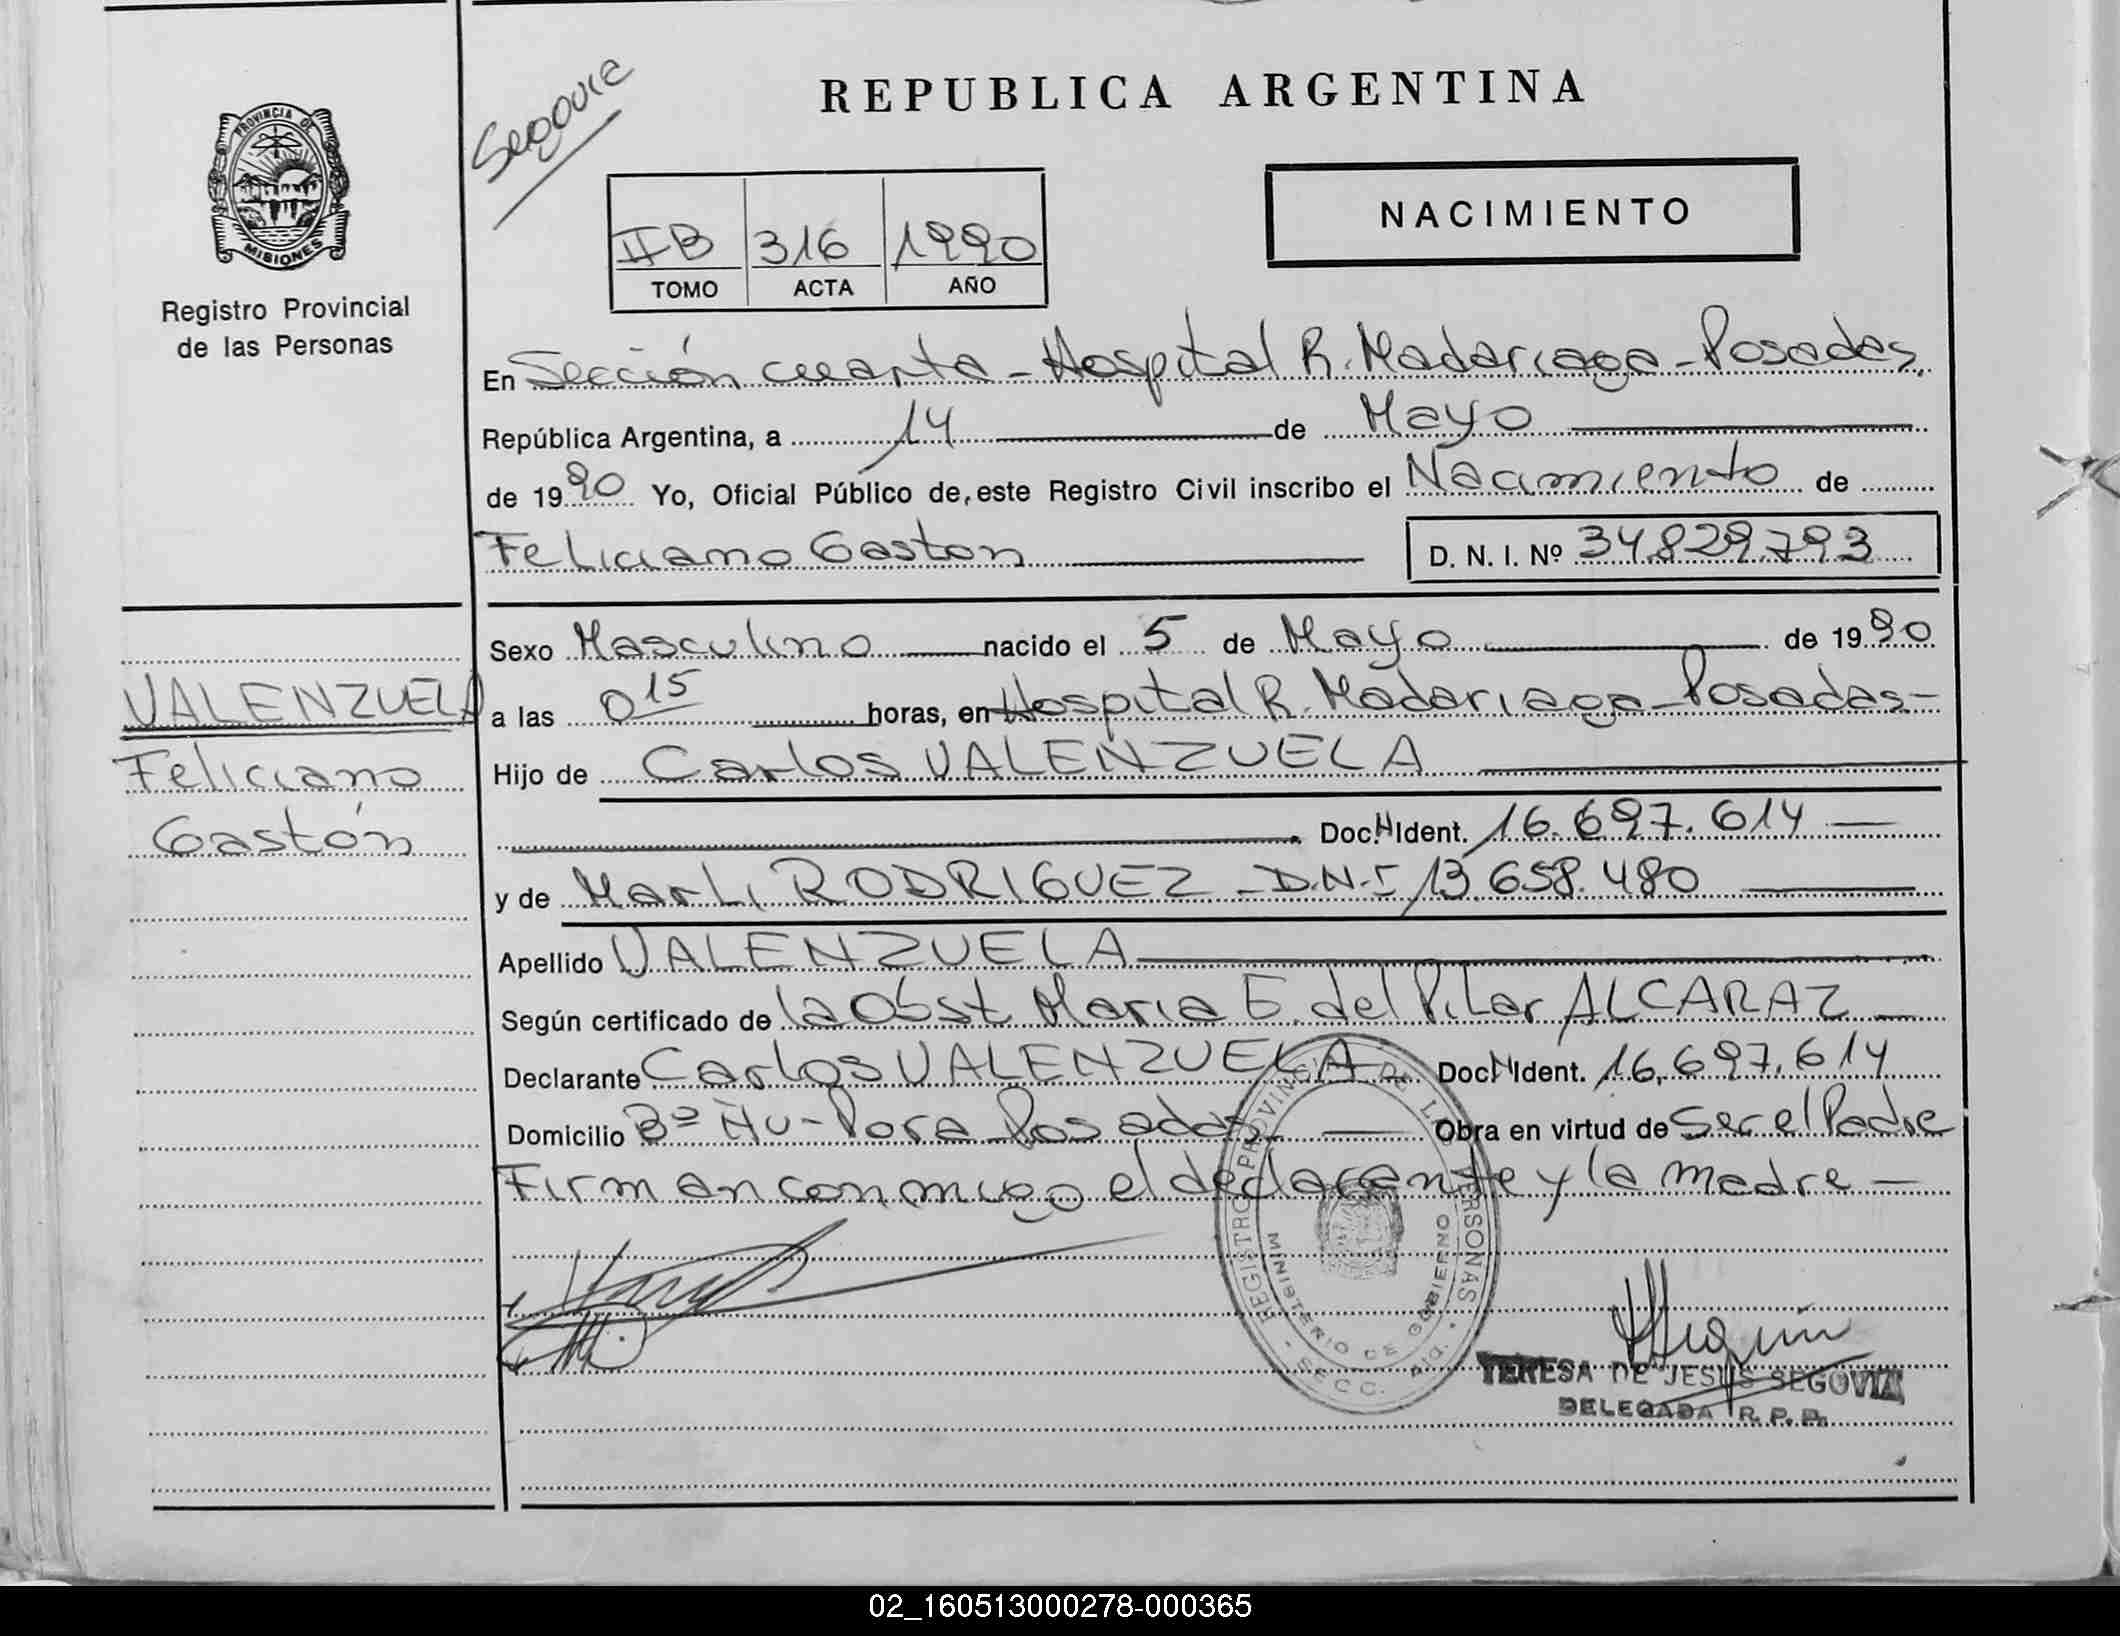 Segovia
REPUBLICA ARGENTINA
PROVINCIA DE
MISIONES
Registro Provincial
de las Personas
NACIMIENTO
IIB 316 1990
TOMO ACTA AÑO
En Sección cuarta - Hospital R. Madariaga - Posadas,
República Argentina, a 14 de Mayo
de 1990 Yo, Oficial Público de este Registro Civil inscribo el Nacimiento de
Feliciano Gaston D. N. I. Nº 34.829.793
VALENZUELA
Feliciano
Gastón
Sexo Masculino nacido el 5 de Mayo de 1990
a las 0 15 horas, en Hospital R. Madariaga - Posadas -
Hijo de Carlos VALENZUELA
Doc. Ident. 16.697.614
y de Marli RODRIGUEZ - D.N.I 13.658.480
Apellido VALENZUELA
Según certificado de la Obst Maria E. del Pilar ALCARAZ
Declarante Carlos VALENZUELA Doc. Ident. 16.697.614
Domicilio Bº Ñu-Pora Posadas Obra en virtud de Ser el Padre
Firman conmigo el declarante y la madre
REGISTRO PROVINCIAL DE LAS PERSONAS
MINISTERIO DE GOBIERNO
SECC.
TERESA DE JESUS SEGOVIA
DELEGADA R. P. P.
02_160513000278-000365